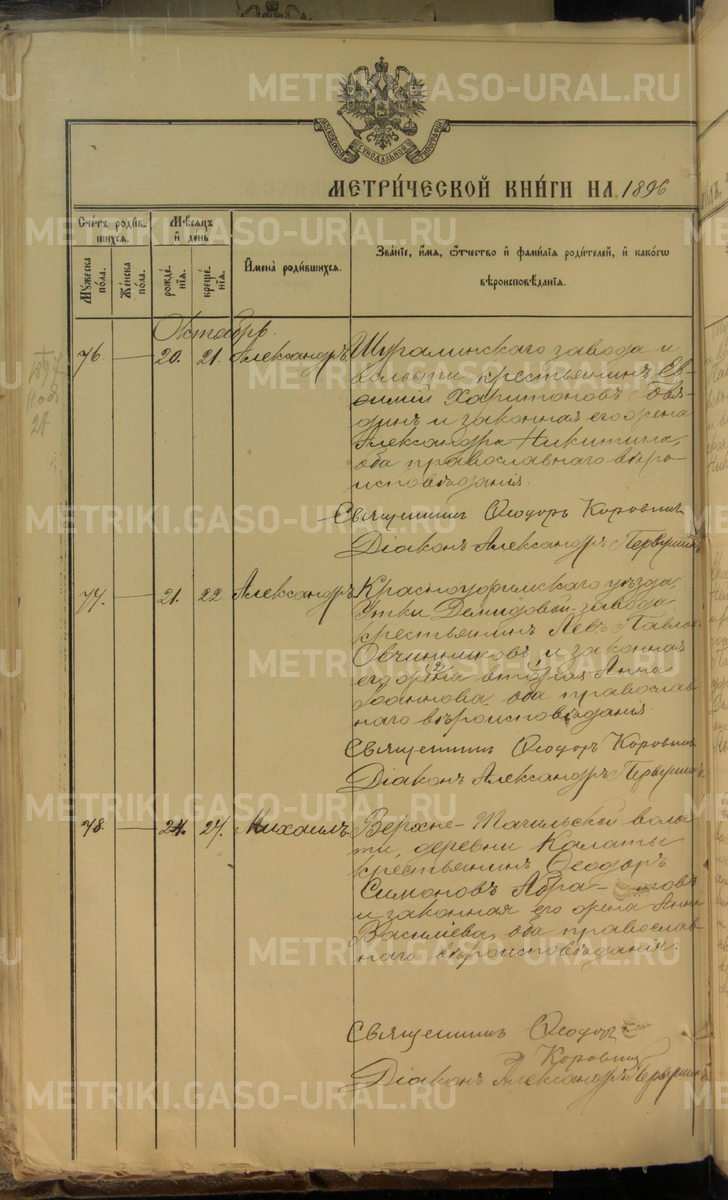 МОСКОВСКОЙ СѴНОДАЛЬНОЙ ТИПОГРАФІИ
МЕТРИ́ЧЕСКОЙ КНИ́ГИ НА 1896
Сче́тъ роди́в-
шихся.
Мѣ́сяцъ
и де́нь
Имена̀ роди́вшихся.
Зва́нїе, и́мя, ѻ́тчество и фами́лїя роди́телей, и како́гѡ
вѣроисповѣ́данїя.
Мꙋ́жеска
по́ла.
Же́нска
по́ла.
рожде́-
нїя.
креще́-
нїя.
Октябрь.
76. — 20. 21. Александръ Шуралинскаго завода и
волости крестьянинъ Ев-
ѳимій Харитоновъ
динъ и законная его жена
Александра Никитина,
оба православнаго вѣро-
исповѣданія.
Священникъ Ѳеодоръ Коровинъ
Діаконъ Александръ Первушинъ
77. — 21. 22 Александръ Красноуфимскаго уѣзда,
Утки Демидовой завода
крестьянинъ Левъ Павловъ
Овчинниковъ, и законная
его жена вторая Анна
Іоаннова, оба православ
наго вѣроисповѣданія.
Священникъ Ѳеодоръ Коровинъ
Діаконъ Александръ Первушинъ
78. — 24. 27. Михаилъ Верхне-Тагильской воло-
сти, деревни Калаты
крестьянинъ Ѳеодоръ
Симоновъ
и законная его жена Анна
Василіева, оба православ
наго вѣроисповѣданія.
Священникъ Ѳеодоръ
Коровинъ
Діаконъ Александръ Первушинъ
METRIKI.GASO-URAL.RU